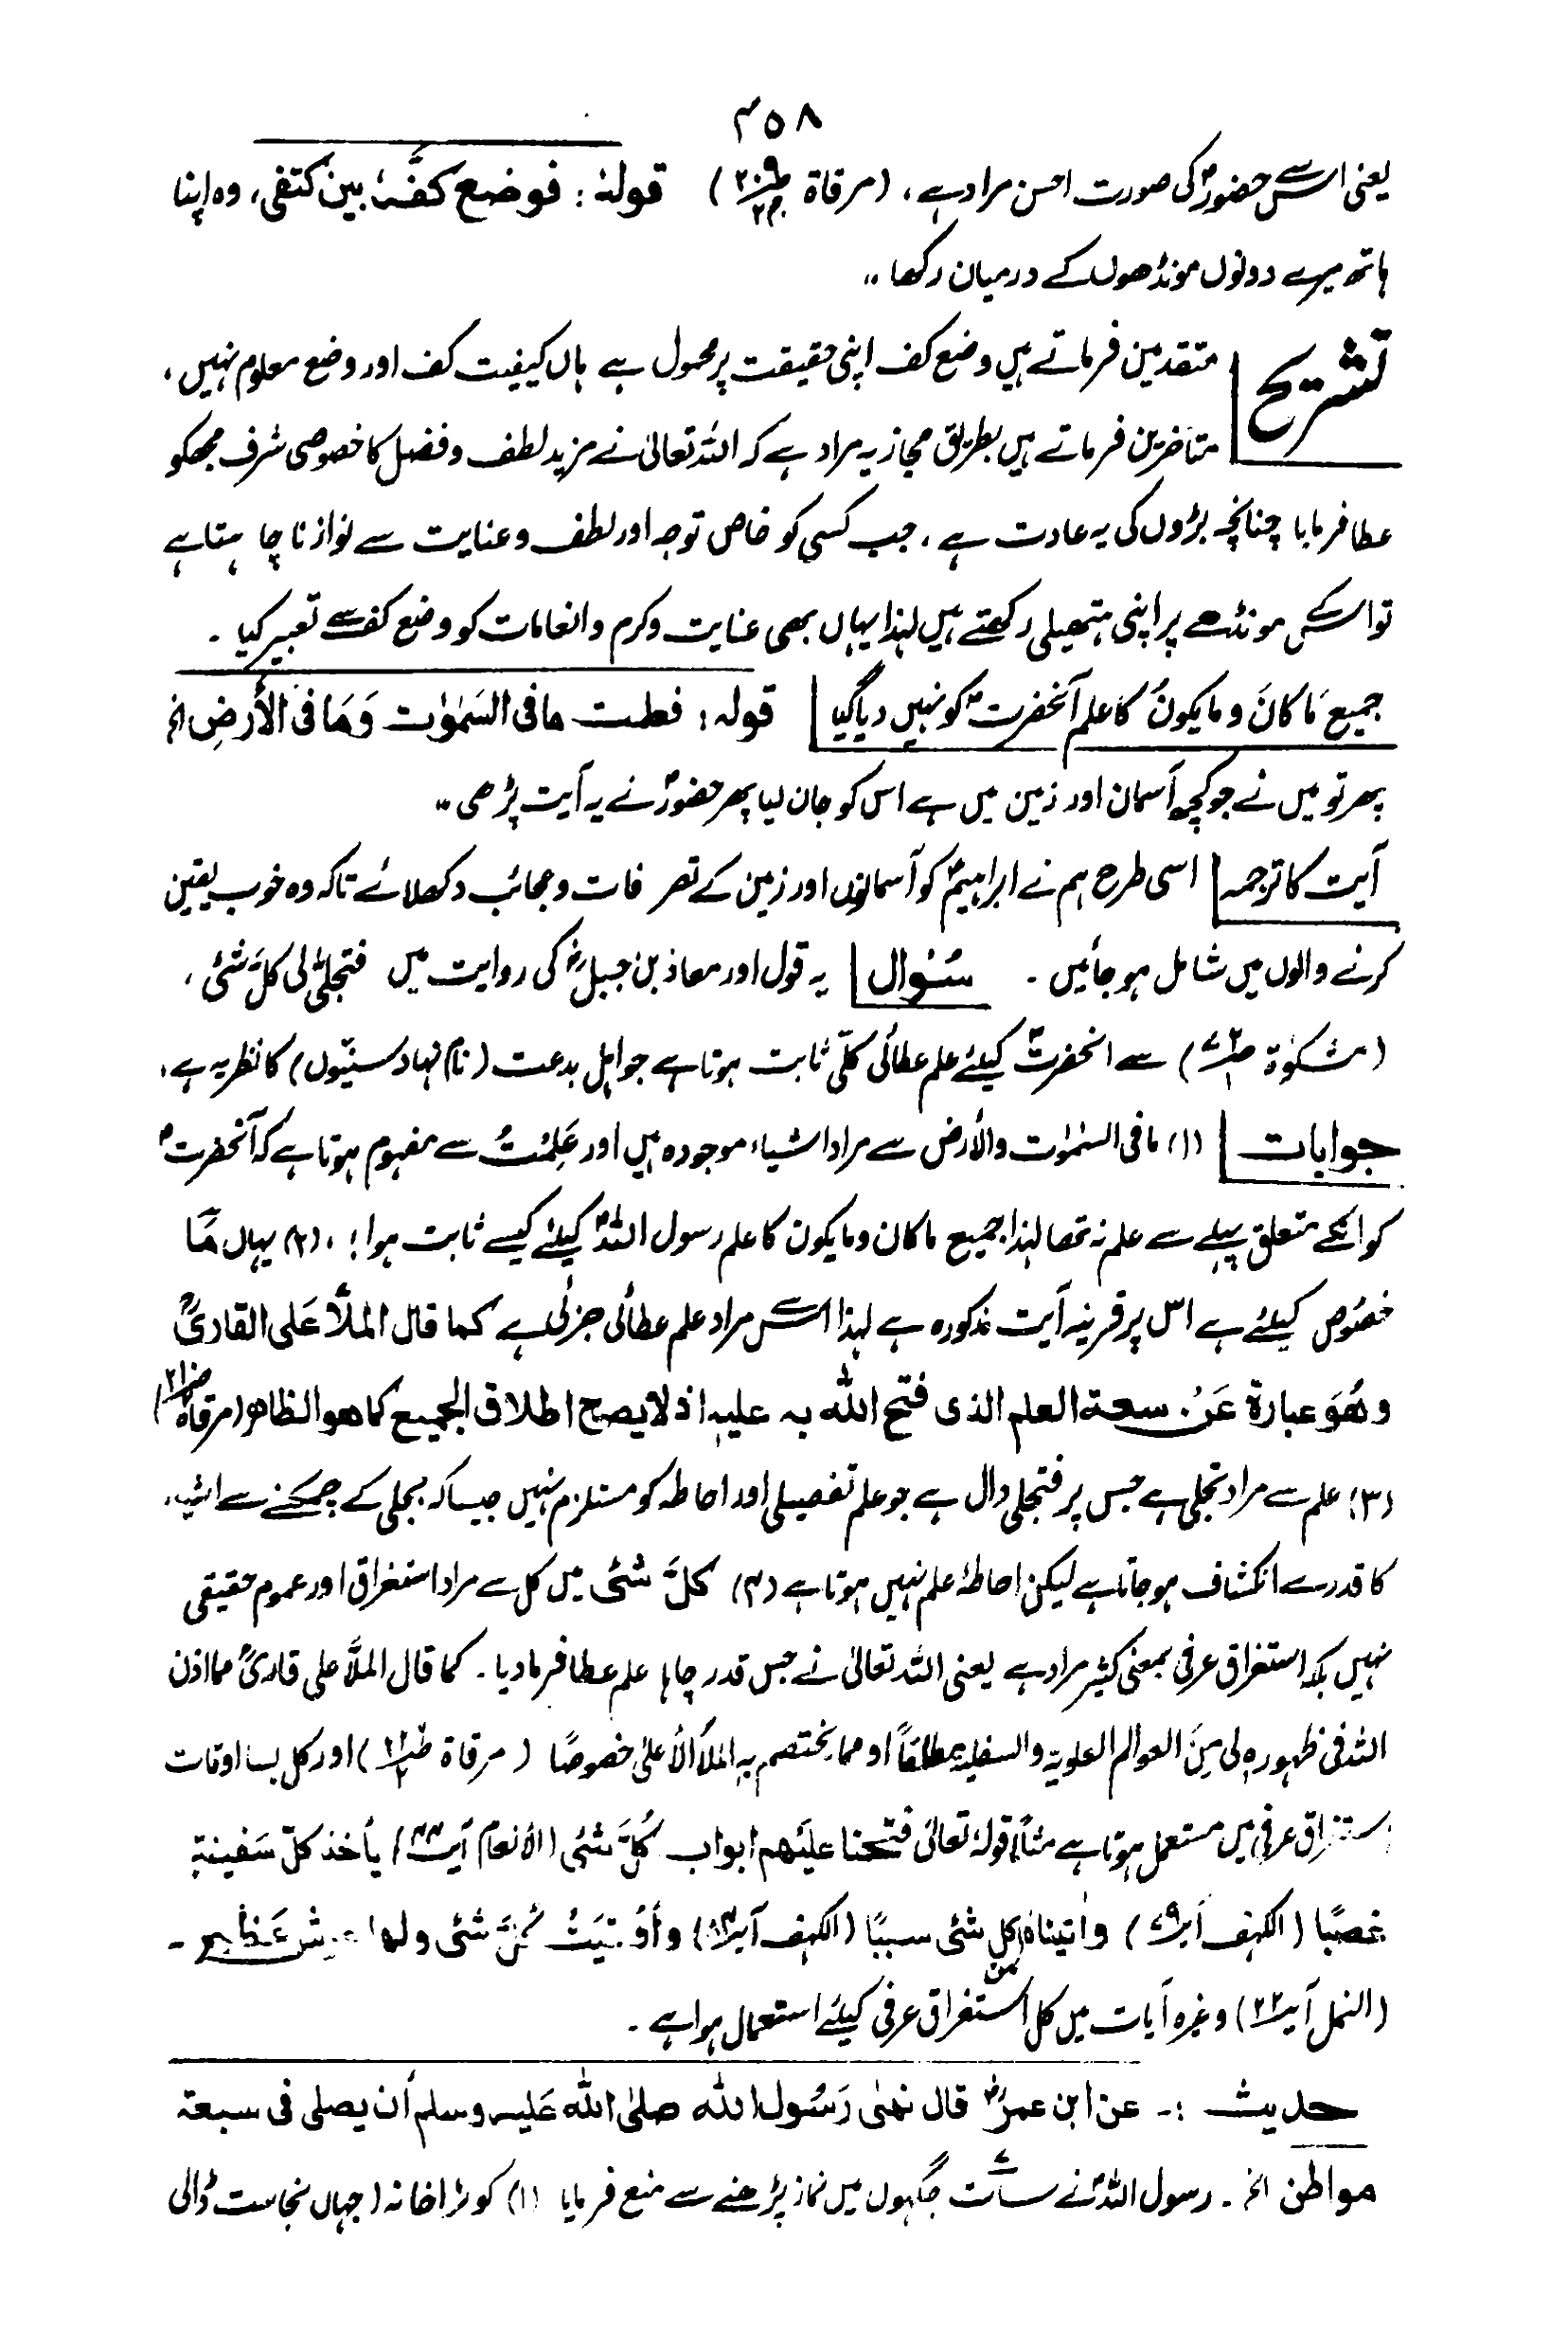 ۴۵۸
یعنی اس سے حضورؐ کی صورت احسن مراد ہے، (مرقاۃ ص۲۰۹ ج۲) قولہٗ: فوضع کفَّہٗ بین کتفی، وہ اپنا
ہاتھ میرے دونوں مونڈھوں کے درمیان رکھا ،،
تشریح | متقدمین فرماتے ہیں وضع کف اپنی حقیقت پر محمول ہے ہاں کیفیت کف اور وضع معلوم نہیں،
متأخرین فرماتے ہیں بطریق مجاز یہ مراد ہے کہ اللہ تعالیٰ نے مزید لطف و فضل کا خصوصی شرف مجھکو
عطا فرمایا چنانچہ بڑوں کی یہ عادت ہے، جب کسی کو خاص توجہ اور لطف و عنایت سے نوازنا چاہتا ہے
تو اسکے مونڈھے پر اپنی ہتھیلی رکھتے ہیں لہٰذا یہاں بھی عنایت و کرم و انعامات کو وضع کف سے تعبیر کیا ۔
جمیع مَا کانَ وما یکونُ کا علم آنحضرتؐ کو نہیں دیا گیا | قولہ: فعلمت ما فی السَمٰوٰت وَمَا فی الأرضِ الخ
پھر تو میں نے جو کچھ آسمان اور زمین میں ہے اس کو جان لیا پھر حضورؐ نے یہ آیت پڑھی ،،
آیت کا ترجمہ | اسی طرح ہم نے ابراہیمؑ کو آسمانوں اور زمین کے تصرفات و عجائب دکھلائے تاکہ وہ خوب یقین
کرنے والوں میں شامل ہو جائیں ۔ سُئوال | یہ قول اور معاذ بن جبلؓ کی روایت میں فتجلّٰی لی کلَّ شئی،
(مشکوٰۃ ص۷۲ ج۱) سے انحضرتؐ کیلئے علم عطائی کلّی ثابت ہوتا ہے جو اہل بدعت (نام نہاد سنیّوں) کا نظریہ ہے،
جوابات | (۱) ما فی السمٰوٰت والأرض سے مراد اشیاء موجودہ ہیں اور عَلِمْتُ سے مفہوم ہوتا ہے کہ آنحضرتؐ
کو انکے متعلق پہلے سے علم نہ تھا لہٰذا جمیع ماکان ومایکون کا علم رسول اللہؐ کیلئے کیسے ثابت ہوا؟، (۲) یہاں مَا
خصُوص کیلئے ہے اس پر قرینہ آیت مذکورہ ہے لہٰذا اس سے مراد علم عطائی جزئی ہے کما قال الملَّا عَلی القاریؒ
وھُوَ عبارۃ عَنْ سعۃ العلم الذی فتح اللّٰہ بہ علیہ اذ لا یصح اطلاق الجمیع کما ھو الظاھر (مرقاۃ ص۲۱۰ ج۲)
(۳) علم سے مراد تجلی ہے جس پر فتجلی دال ہے جو علم تفصیلی اور احاطہ کو مستلزم نہیں جیسا کہ بجلی کے چمکنے سے اشیاء
کا قدرے انکشاف ہو جاتا ہے لیکن احاطۂ علم نہیں ہوتا ہے (۴) کلَّ شئی میں کل سے مراد استغراق اور عموم حقیقی
نہیں بلکہ استغراق عرفی بمعنی کثیر مراد ہے یعنی اللہ تعالیٰ نے جس قدر چاہا علم عطا فرما دیا ۔ کما قال الملَّا علی قاریؒ مما اذن
اللہ فی ظہورہ لی مِنَ العوالم العلویۃ والسفلیۃ مطلقاً او مما یختصم بہ الملأ الأعلیٰ خصوصًا (مرقاۃ) اور کل بسا اوقات
استغراق عرفی میں مستعمل ہوتا ہے مثلاً قولہٗ تعالیٰ فتحنا علیھم ابواب کُلِّ شئی (الأنعام آیت۴۴) یأخذ کلّ سَفینۃٍ
غصبًا (الکہف آیت۷۹) واٰتیناہ من کل شئی سببًا (الکہف آیت۸۴) وأُوْتِیَتْ مِنْ کُلِّ شئی ولھا عرش عَظیم ۔
(النمل آیت۲۳) وغیرہ آیات میں کل استغراق عرفی کیلئے استعمال ہوا ہے ۔
حدیث :۔ عن ابن عمرؓ قال نھٰی رَسُول اللّٰہ صلیٰ اللّٰہ عَلیہ وسلم أن یصلی فی سبعۃ
مواطن الخ ۔ رسول اللہؐ نے سات جگہوں میں نماز پڑھنے سے منع فرمایا (۱) کوڑا خانہ (جہاں نجاست ڈالی